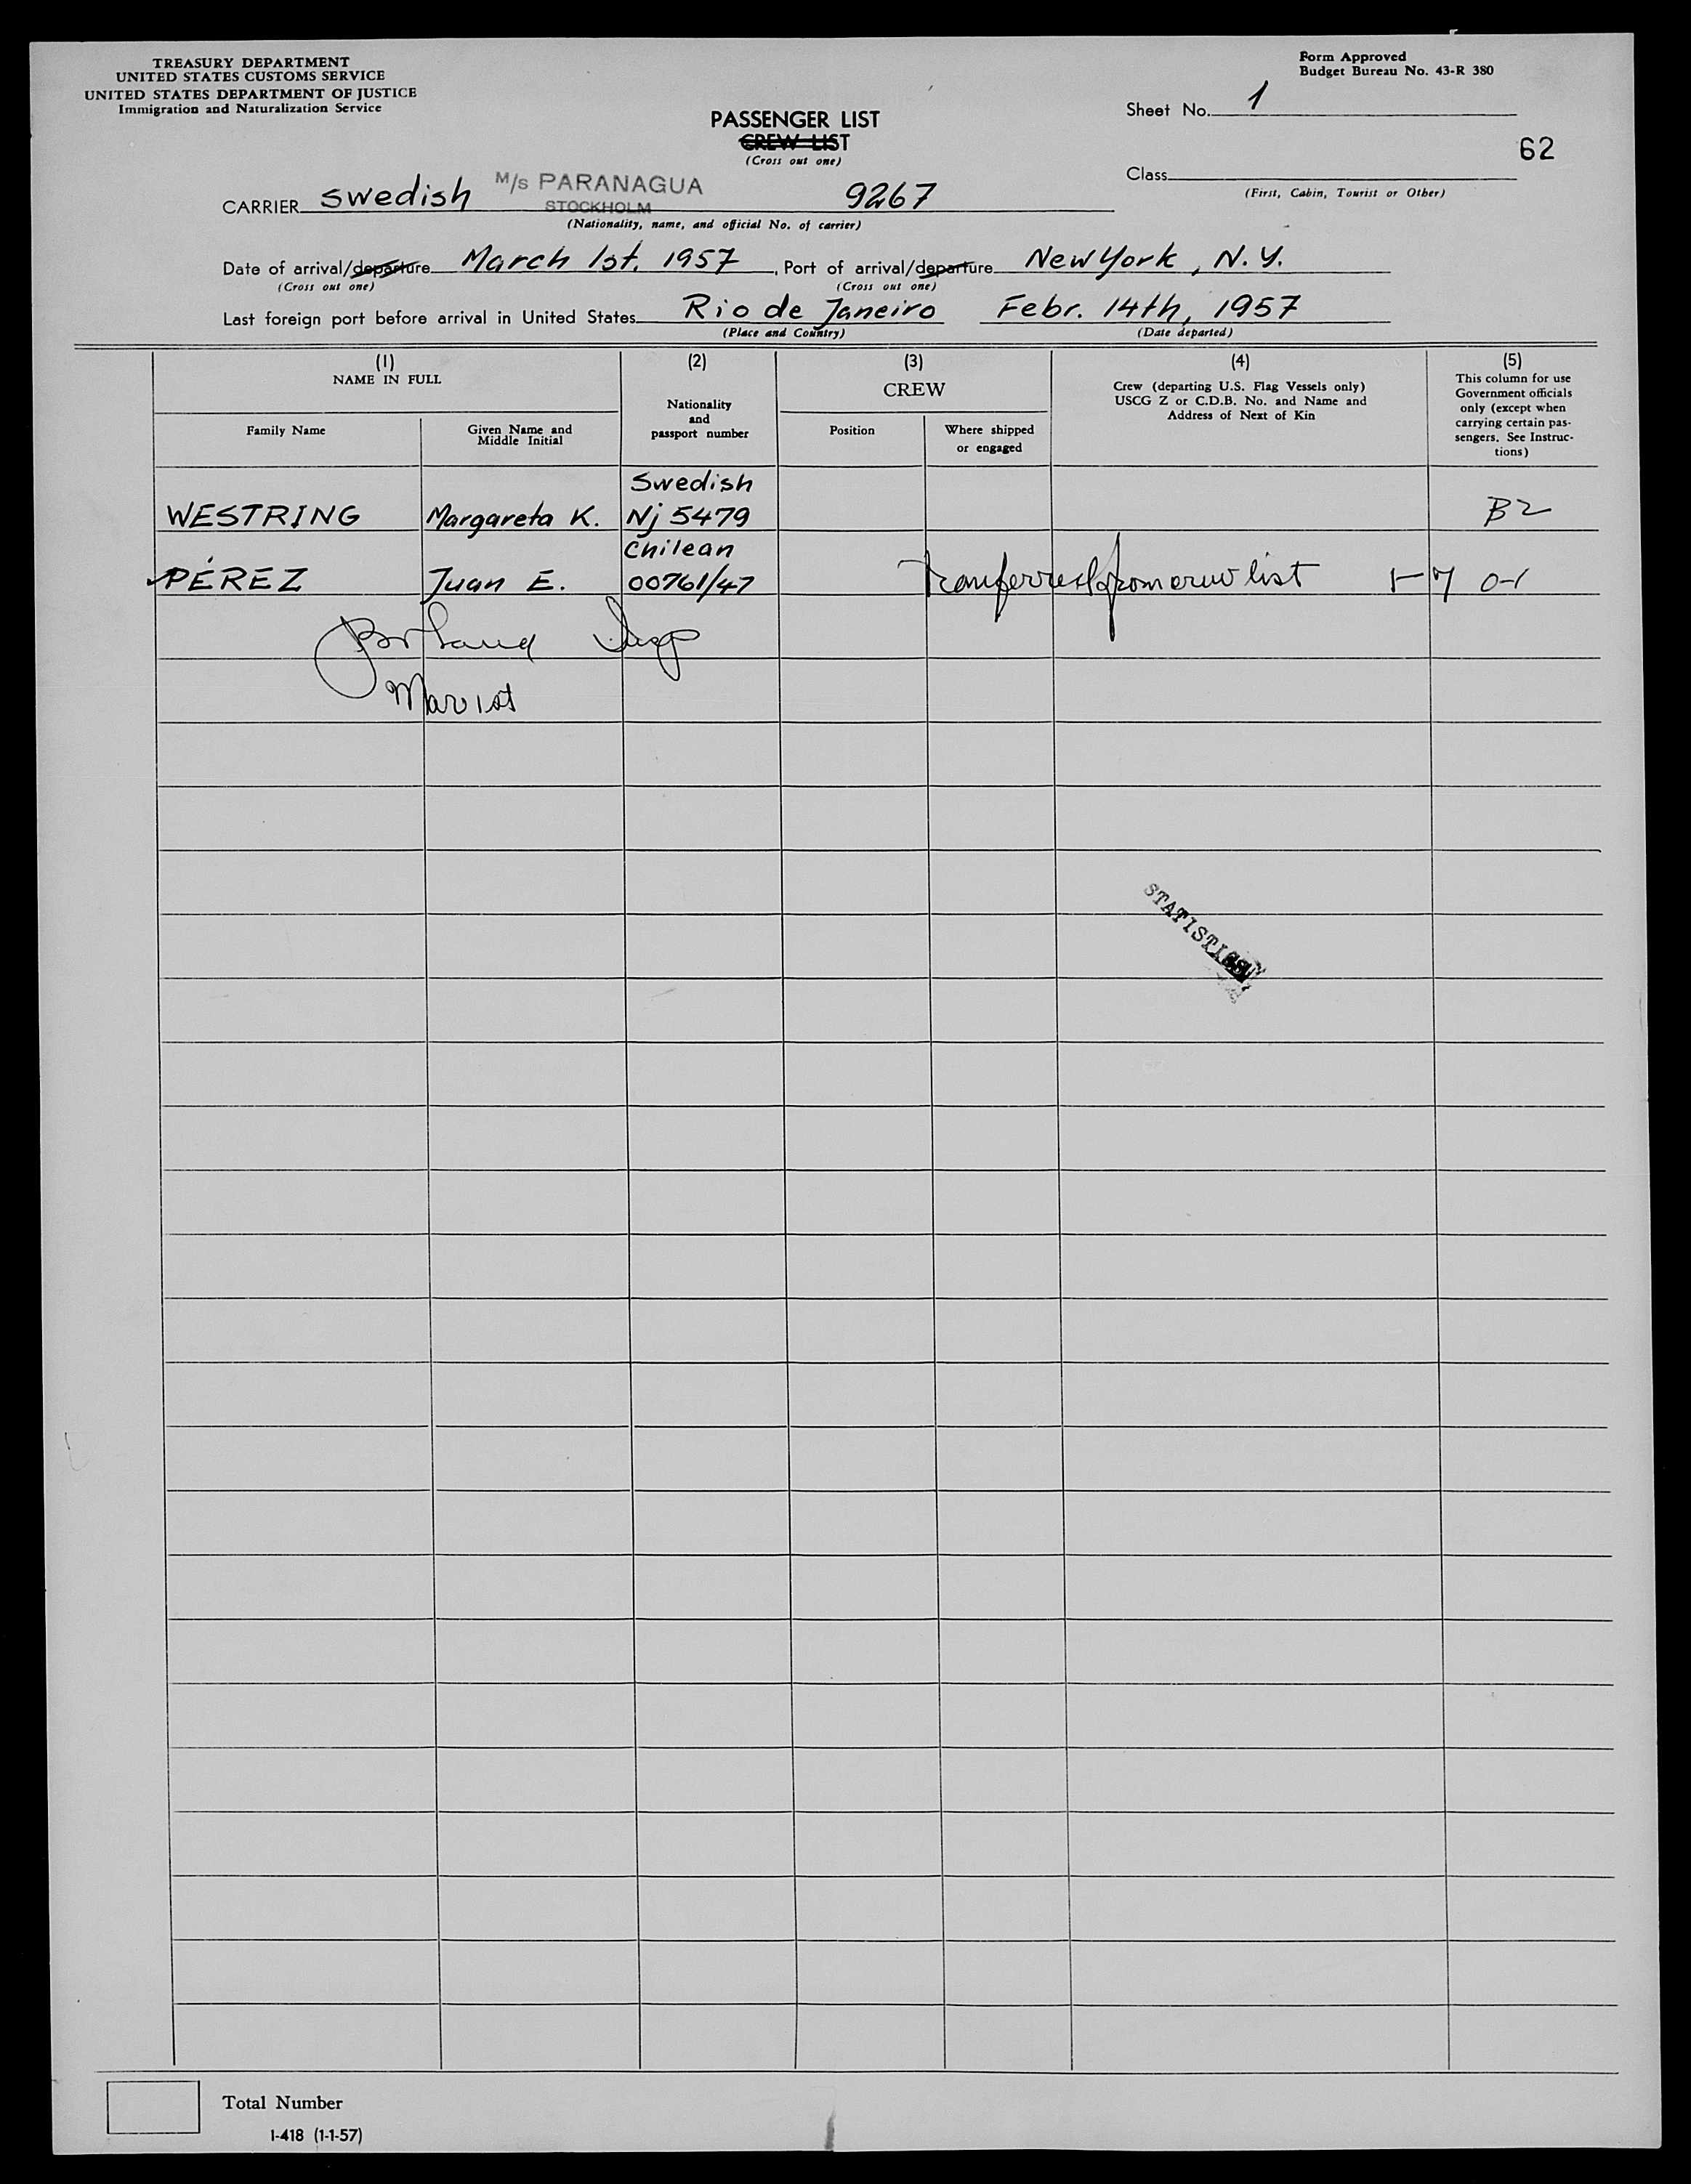 TREASURY DEPARTMENT
UNITED STATES CUSTOMS SERVICE
UNITED STATES DEPARTMENT OF JUSTICE
Immigration and Naturalization Service
Form Approved
Budget Bureau No. 43-R 380
Sheet No. 1
62
PASSENGER LIST
CREW LIST
(Cross out one)
Class
(First, Cabin, Tourist or Other)
CARRIER Swedish M/s PARANAGUA 9267
STOCKHOLM
(Nationality, name, and official No. of carrier)
Date of arrival/departure March 1st, 1957, Port of arrival/departure New York, N.Y.
(Cross out one) (Cross out one)
Last foreign port before arrival in United States Rio de Janeiro Febr. 14th, 1957
(Place and Country) (Date departed)
(1) (2) (3) (4) (5)
NAME IN FULL
Family Name
Given Name and
Middle Initial
Nationality
and
passport number
CREW
Position
Where shipped
or engaged
Crew (departing U.S. Flag Vessels only)
USCG Z or C.D.B. No. and Name and
Address of Next of Kin
This column for use
Government officials
only (except when
carrying certain pas-
sengers. See Instruc-
tions)
Swedish
WESTRING Margareta K. Nj 5479 B2
Chilean
PÉREZ Juan E. 00761/47 Transferred from crew list 0-1
Insp
Mar 1st
STATISTICS
Total Number
I-418 (1-1-57)